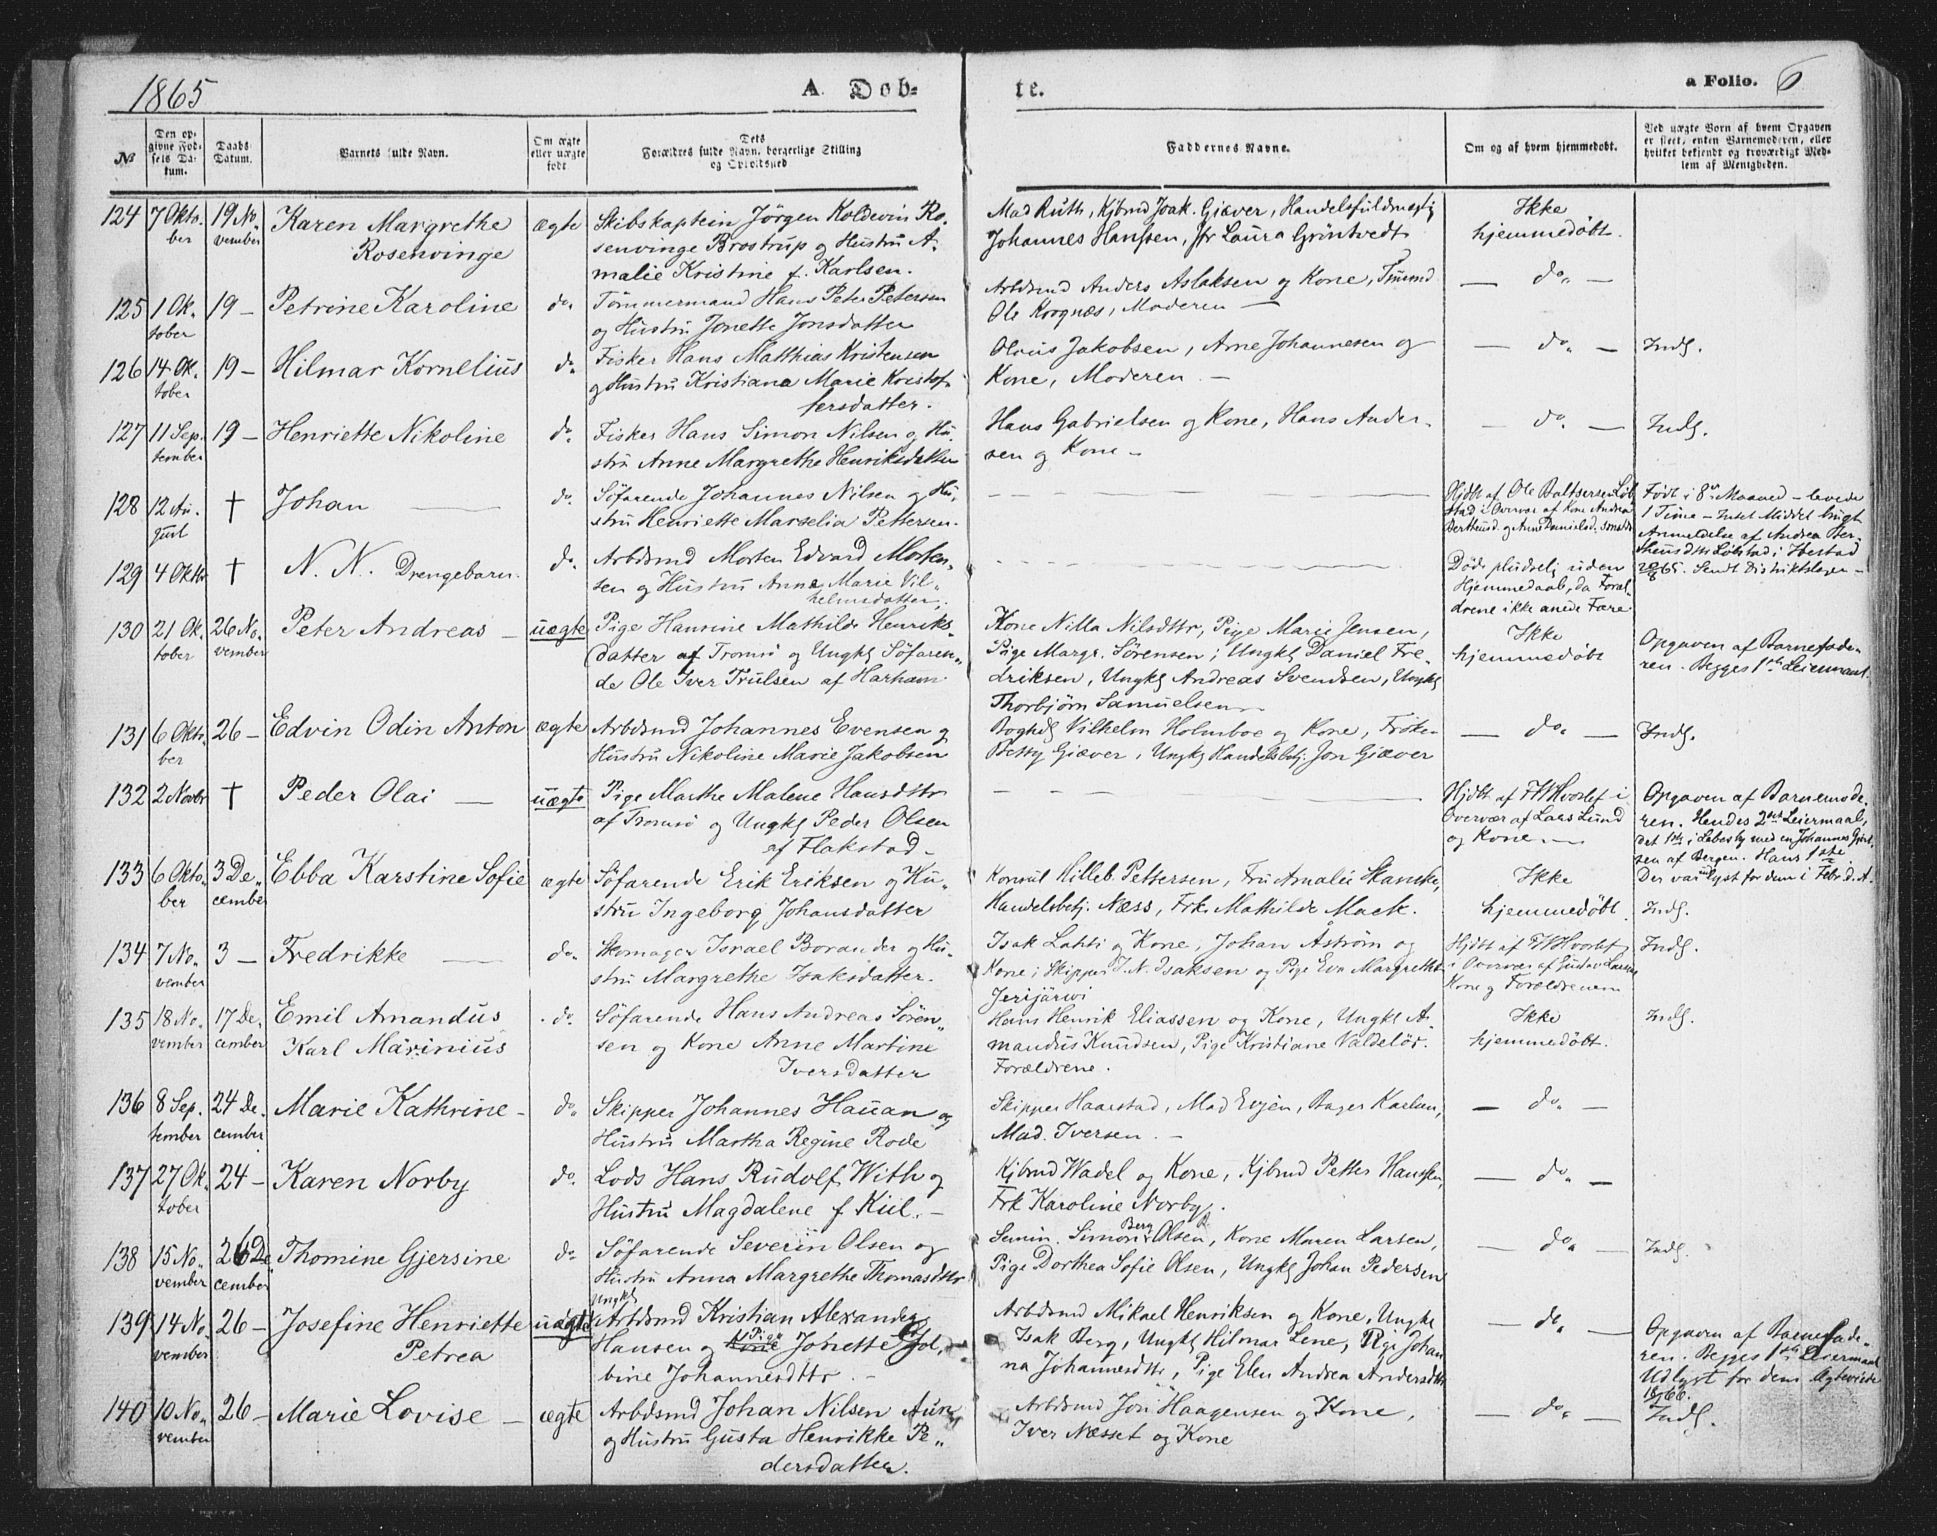 1865
A. Døb-
te.
a Folio. 6
№
Den op-
givne Fød-
sels Da-
tum.
Daabs
Datum.
Barnets fulde Navn.
Om ægte
eller uægte
født
Dets
Forældres fulde Navn, borgerlige Stilling
og Opholdssted
Faddernes Navne.
Om og af hvem hjemmedøbt.
Ved uægte Børn af hvem Opgaven
er skeet, enten Barnemoderen, eller
hvilket bekjendt og troværdigt Med-
lem af Menigheden.
124 7 Okto- 19 No- Karen Margrethe ægte Skibskaptein Jörgen Koldevin Ro-
ber vember Rosenvinge senvinge Brostrup og Hustru A-
malie Kristine f. Karlsen.
Mad Ruth, Kjbmd Joak. Giæver, Handelsfuldmægtig
Johannes Hanssen, Jfr Laura Gröntvedt
Ikke
hjemmedøbt.
125 1 Ok- 19 – Petrine Karoline do. Tömmermand Hans Peter Petersen
tober og Hustru Jonette Jonsdatter
Arbdsmd Anders Aslaksen og Kone, Tmmd
Ole Kragnæs, Moderen —
— do. —
126 14 Ok- 19 – Hilmar Kornelius do. Fisker Hans Matthias Kristensen
tober og Hustru Kristiana Marie Kristof-
fersdatter.
Olaus Jakobsen, Arne Johannesen og
Kone, Moderen. —
— do. — Indf.
127 11 Sep- 19 – Henriette Nikoline do. Fisker Hans Simon Nilsen og Hu-
tember stru Anne Margrethe Henriksdatter
Hans Gabrielsen og Kone, Hans Ander-
sen og Kone –
— do. — Indf.
128 12 Au- † Johan — do. Söfarende Johannes Nilsen og Hu-
gust stru Henriette Marselia Pettersen.
Hjdbt af Ole Baltsersen Løb-
stad i Overvær af Kone Andrea
Bertheusd. og Anne Danielsd. smstds
Født i 8de Maaned – levede
1 Time – Intet Middel brugt
Anmeldelse af Andrea Ber-
theusdttr Løbstad i Ibestad
65. Sendt Distriktslægen –
129 4 Oktbr † N. N. Drengebarn. do. Arbdsmd Morten Edvard Morten-
sen og Hustru Anne Marie Vil-
helmsdatter.
Døde pludselig uden
Hjemmedaab, da Foræl-
drene ikke anede Fare
130 21 Ok- 26 No- Peter Andreas – uægte Pige Hansine Mathilde Henriks-
tober vember datter af Tromsö og Ungkl Söfaren-
de Ole Iver Trulsen af Harham
Kone Nilla Nilsdttr, Pige Marie Jensen,
Pige Margr. Sörensen; Ungkl Daniel Fre-
driksen, Ungkl Andreas Svendsen, Ungkl
Thorbjörn Samuelsen
Ikke
hjemmedöbt
Opgaven af Barnefade-
ren. Begges 1ste Leiermaal.
131 6 Okto- 26 – Edvin Odin Anton ægte Arbdsmd Johannes Evensen og
ber Hustru Nikoline Marie Jakobsen
Boghdl Vilhelm Holmboe og Kone, Frøken
Betty Giæver, Ungkl Handelsbetj. Jon Giæver
— do. — Indf.
132 2 Novbr † Peder Olai — uægte Pige Marthe Malene Hansdttr
af Tromsö og Ungkl Peder Olsen
af Flakstad –
Hjdbt af FWHvoslef i
Overvær af Lars Lund
og Kone. —
Opgaven af Barnemode-
ren. Hendes 2det Leiermaal,
det 1ste i Lebesby med en Johannes
sen af Bergen. Hans 1ste.
Der var lyst for dem i Febr. d. A.
133 6 Okto- 3 De- Ebba Karstine Sofie ægte Söfarende Erik Eriksen og Hu-
ber cember stru Ingeborg Johansdatter
Konsul Hilleb. Pettersen, Fru Amalie Skancke,
Handelsbetj. Næss, Frk. Mathilde Mack.
Ikke
hjemmedöbt Indf.
134 7 No- 3 – Fredrikke — do. Skomager Israel Borander og Hu-
vember stru Margrethe Isaksdatter.
Isak Lahti og Kone, Johan Åström og
Kone; Skipper I. N. Isaksen og Pige Eva Margrethe
Jerijärvi
Hjdbt af FWHvoslef
i Overvær af Gustav Larsens
Kone og Forældrenem
Indf.
135 18 No- 17 De- Emil Amandus do. Söfarende Hans Andreas Sören-
vember cember Karl Marinius sen og Kone Anne Martine
Iversdatter
Hans Henrik Eliassen og Kone, Ungkl A-
mandus Knudsen, Pige Kristiane Valdelör.
Forældrene.
Ikke
hjemmedøbt.
Indf.
136 8 Sep- 24 De- Marie Kathrine – do. Skipper Johannes Hauan og
tember cember Hustru Martha Regine Rode
Skipper Haarstad, Mad Evjen, Bager Karlsen,
Mad. Iversen. –
— do. —
137 27 Ok- 24 – Karen Norby do. Lods Hans Rudolf With og
tober Hustru Magdalene f. Kiil. –
Kjbmd Wadel og Kone, Kjbmd Petter Hanssen,
Frk Karoline Norby.
— do. —
138 15 No- 26 De- Thomine Gjersine do. Söfarende Severin Olsen og
vember cember Hustru Anna Margrethe Thomasdttr
Semin. Simon Berg Olsen, Kone Maren Larsen,
Pige Dorthea Sofie Olsen, Ungkl Johan Pedersen
— do. — Indf.
139 14 No- 26 – Josefine Henriette uægte Ungkl Arbdsmd Kristian Alexander
vember Petrea Hansen og Kone Pige Jonette Jol-
bine Johannesdttr. –
Arbdsmd Mikael Henriksen og Kone, Ungkl
Isak Berg, Ungkl Hilmar Lene, Pige Johan-
na Johannesdttr, Pige Elen Andrea Andersdttr
— do. —
Opgaven af Barnefade-
ren. Begges 1ste Leiermaal
Udlyst for dem Ægtevielse
1866.
140 10 No- 26 – Marie Lovise – ægte Arbdsmd Johan Nilsen Aune
vember og Hustru Gusta Henrikke Pe-
dersdatter.
Arbdsmd Jon Haagensen og Kone,
Iver Næsset og Kone
— do. — Indf.